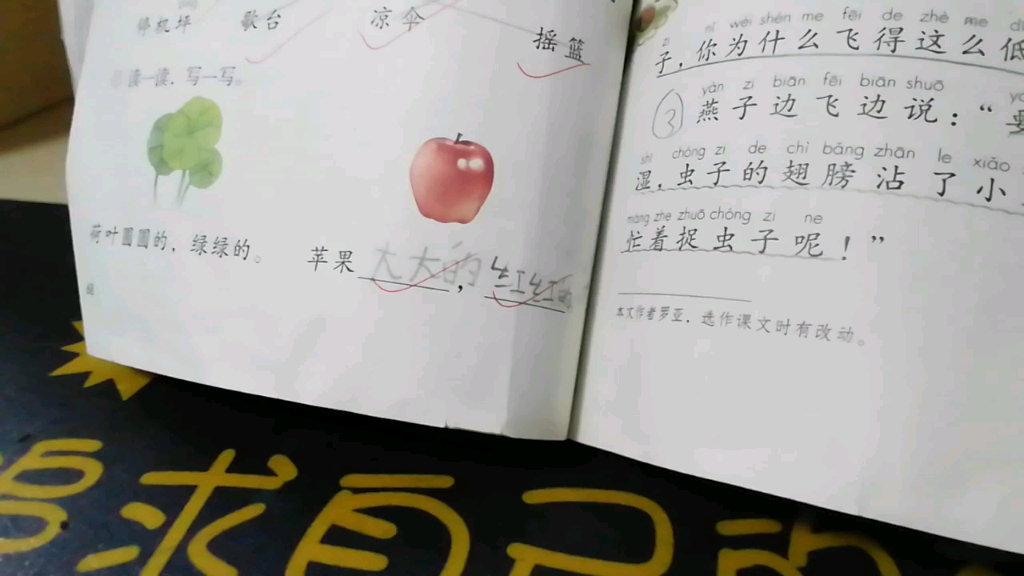 停机坪 歌台 凉伞 摇篮
读一读，写一写。
荷叶圆圆的，绿绿的。 苹果大大的，红红的
68
zi nǐ wèi shén me fēi de zhè me
子，你为什么飞得这么低
yàn zi biān fēi biān shuō
③ 燕子边飞边说：“要
shī chóng zi de chì bǎng zhān le xiǎo
湿，虫子的翅膀沾了小
máng zhe zhuō chóng zi ne
忙着捉虫子呢！”
本文作者罗亚，选作课文时有改动。
求自己